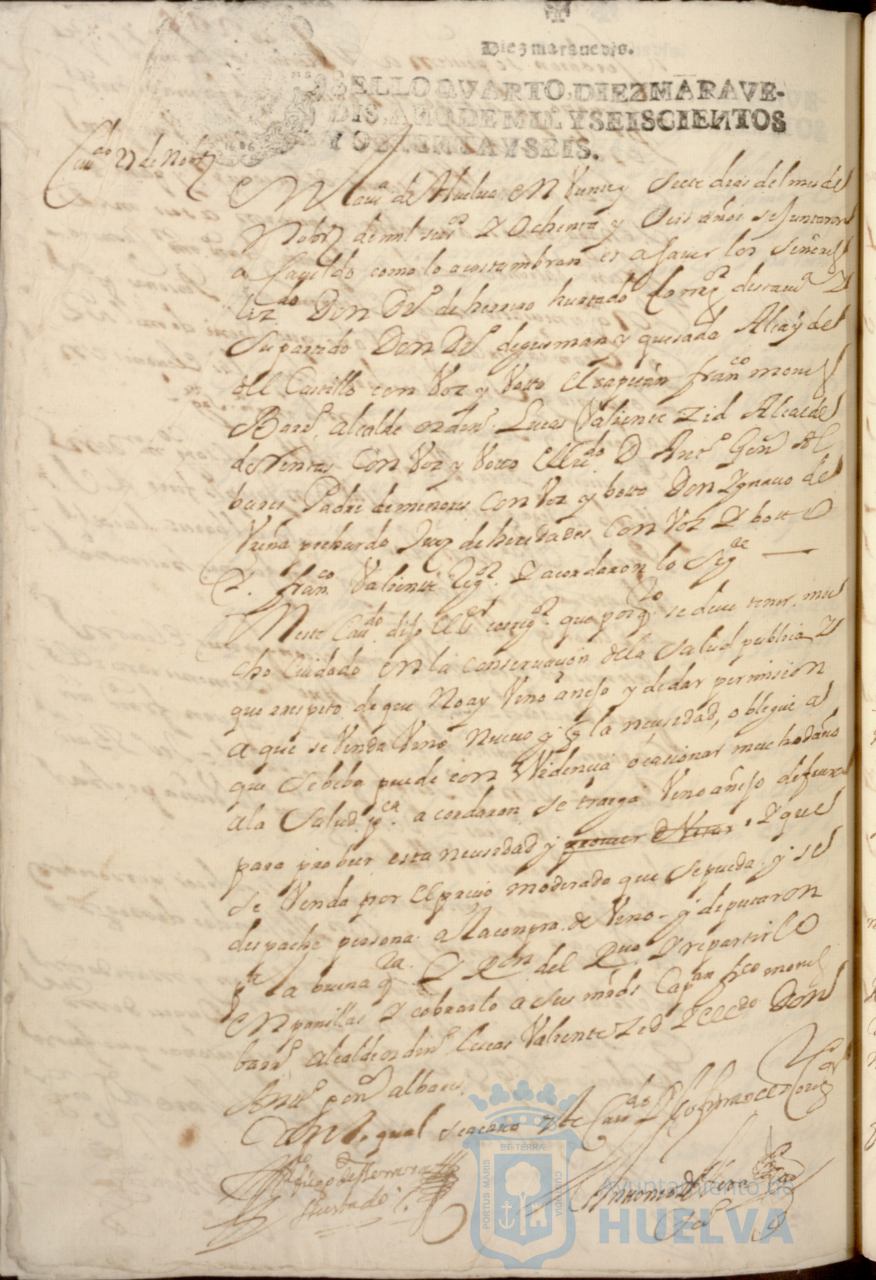 Diez maravedis.
SELLO QVARTO, DIEZ MARAVE-
DIS, AÑO DE MIL Y SEISCIENTOS
Y OCHENTA Y SEIS.
Cau.do 27 de Nobre
En la uia de Huelua en Vente y siete dias del mes de
Nobre de mil seis.os y Ochenta y Seis años se Juntaron
a Cauildo como lo acostumbran es a sauer los señores
liz.do Don D.o de herrera hurtado Correg.or desta ui.a y
su partido Don D.o de gusman y quesada Alcayde
del Castillo con Voz y Votto El capitan fran.co moreno
alcalde orden.o Lucas Valiente Zid Alcalde
de Rentas Con Voz y Votto el liz.do D. Ant.o
Padre de menores Con Voz y botto Don Ygnacio de
Juez de heredades Con Voz y botto
fran.co Valiente y acordaron lo sig.te
En este Cau.do dijo el S.r correg.or que por q.to se deue tener mu
cho Cuidado en la conseruazion de la Salud publica y
que a respeto de que No ay Vino añejo y de dar permision
a que se Venda Vino Nueuo y q la necesidad, obligue a
que se beba puede con evidencia ocasionar mucho daño
a la Salud acordaron se traiga Vino añejo de fuera
para prober esta necesidad y que
se Venda por el precio moderado que se pueda y se
despache persona a la compra de Vino y deputaron
p.a la buena q.ta y Ron del y repartirlo
en panillas y cobrarlo a sus mds Cap.an fr.co moreno
alcalde orden.o lucas Valiente Zid y el l.do Don
Ant.o albares
Con lo qual se
Diego de Herrera
Hurtado
Antonio
Ayuntamiento de
HUELVA
PORTUS MARIS
ET TERRA
CUSTODIA